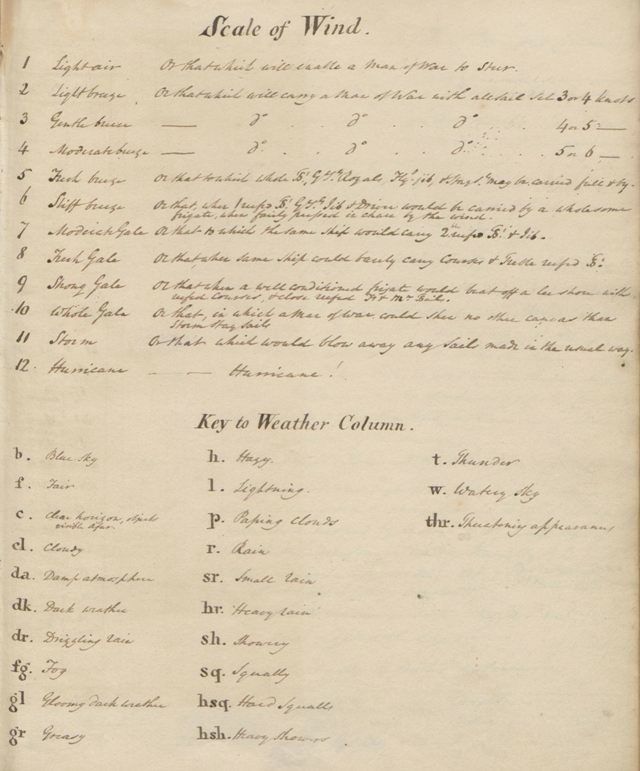 Scale of Wind.
1 Light air Or that which will enable a Man of War to Steer.
2 Light breeze Or that which will carry a Man of War with all sail set 3 or 4 knots
3 Gentle breeze — Do . . Do . . Do . . 4 or 5 —
4 Moderate breeze — Do . . Do . . Do . . 5 or 6 —
5 Fresh breeze Or that to which whole Royals, jib, & may be carried full & by.
6 Stiff breeze Or that, when 1 reef'd Jib & Driver would be carried by a wholesome
frigate, when fairly pressed in chace by the wind.
7 Moderate Gale Or that to which the same Ship would carry 2nd reefd & Jib.
8 Fresh Gale Or that when same Ship could barely carry Courses & Treble reefd
9 Strong Gale Or that when a well conditioned frigate would beat off a lee shore with
reefed Courses, & close reefed Sail.
10 Whole Gale Or that, in which a Man of war could shew no other canvas than
Storm Stay Sails
11 Storm Or that which would blow away any Sails made in the usual way.
12. Hurricane — — Hurricane!
Key to Weather Column.
b. Blue Sky h. Hazy. t. Thunder
f. Fair l. Lightning. w. Watery Sky
c. Clear horizon, objects p. Passing Clouds thr. appearances
visible afar.
cl. Cloudy r. Rain
da. Damp atmosphere sr. Small rain
dk. Dark weather hr. Heavy rain
dr. Drizzling rain sh. Showery
fg. Fog sq. Squally
gl Gloomy dark weather hsq. Hard Squalls
gr Greasy hsh. Heavy Showers